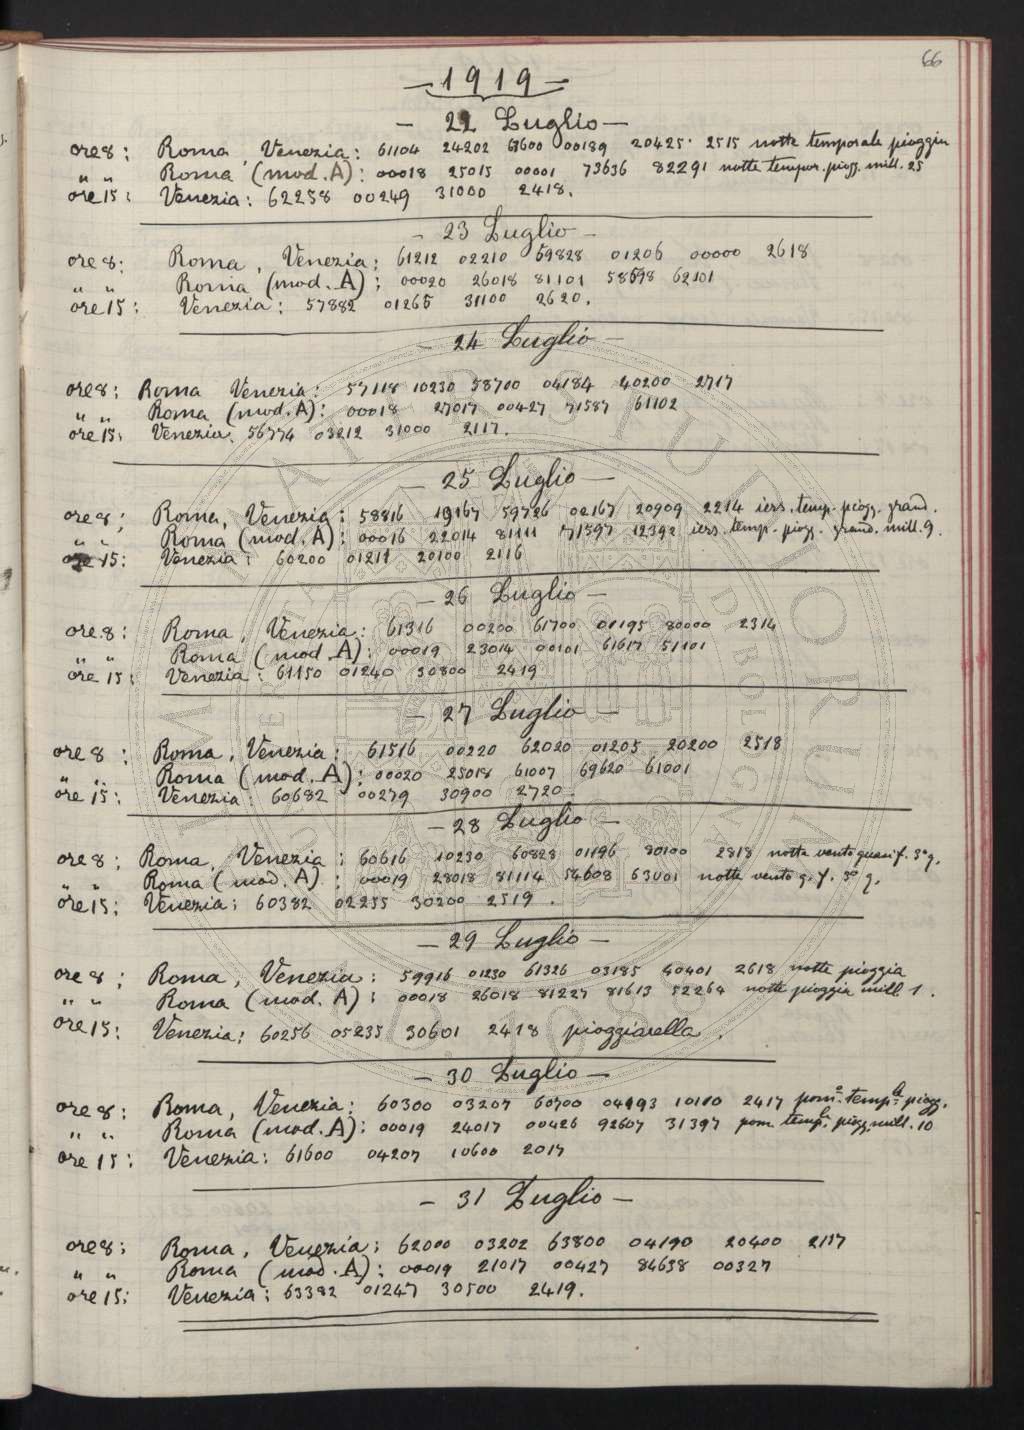 66
- 1919 -
- 22 Luglio -
ore 8 : Roma, Venezia : 61104 24202 63600 00189 20425 2515 notte temporale pioggia
" " Roma (mod. A) : 00018 25015 00001 73636 82291 notte tempor. piogg. mill. 25
ore 15 : Venezia : 62258 00249 31000 2418.
- 23 Luglio -
ore 8 : Roma, Venezia : 61212 02210 59828 01206 00000 2618
" " Roma (mod. A) : 00020 26018 81101 58598 62101
ore 15 : Venezia : 57882 01265 31100 2620.
- 24 Luglio -
ore 8 : Roma Venezia : 57118 10230 58700 04184 40200 2717
" " Roma (mod. A) : 00018 27017 00427 71587 61102
ore 15 : Venezia : 56774 03212 31000 2117.
- 25 Luglio -
ore 8 : Roma, Venezia : 58816 19167 59726 02167 20909 2214 iers. temp. piogg. grand.
" " Roma (mod. A) : 00016 22014 81111 71597 12392 iers. temp. piogg. grand. mill. 9.
ore 15 : Venezia : 60200 01211 20100 2116
- 26 Luglio -
ore 8 : Roma, Venezia : 61316 00200 61700 01195 80000 2314
" " Roma (mod. A) : 00019 23014 00101 61617 51101
ore 15 : Venezia : 61150 01240 30800 2419
- 27 Luglio -
ore 8 : Roma, Venezia : 61516 00220 62020 01205 20200 2518
" " Roma (mod. A) : 00020 25018 61007 69620 61001
ore 15 : Venezia : 60682 00279 30900 2720.
- 28 Luglio -
ore 8 : Roma, Venezia : 60616 10230 60828 01196 80100 2818 notte vento quasi f. 3° q.
" " Roma (mod. A) : 00019 28018 81114 54608 63001 notte vento q. f. 3° q.
ore 15 : Venezia : 60382 02255 30200 2519.
- 29 Luglio -
ore 8 : Roma, Venezia : 59916 01230 61326 03185 40401 2618 notte pioggia
" " Roma (mod. A) : 00018 26018 81227 81613 52264 notte pioggia mill. 1.
ore 15 : Venezia : 60256 05235 30601 2418 pioggiarella.
- 30 Luglio -
ore 8 : Roma, Venezia : 60300 03207 60700 04193 10110 2417 pom. temp. piogg.
" " Roma (mod. A) : 00019 24017 00426 92607 31397 pom temp. piogg. mill. 10
ore 15 : Venezia : 61600 04207 10600 2017
- 31 Luglio -
ore 8 : Roma, Venezia : 62000 03202 63800 04190 20400 2117
" " Roma (mod. A) : 00019 21017 00427 84638 00327
ore 15 : Venezia : 63382 01247 30500 2419.